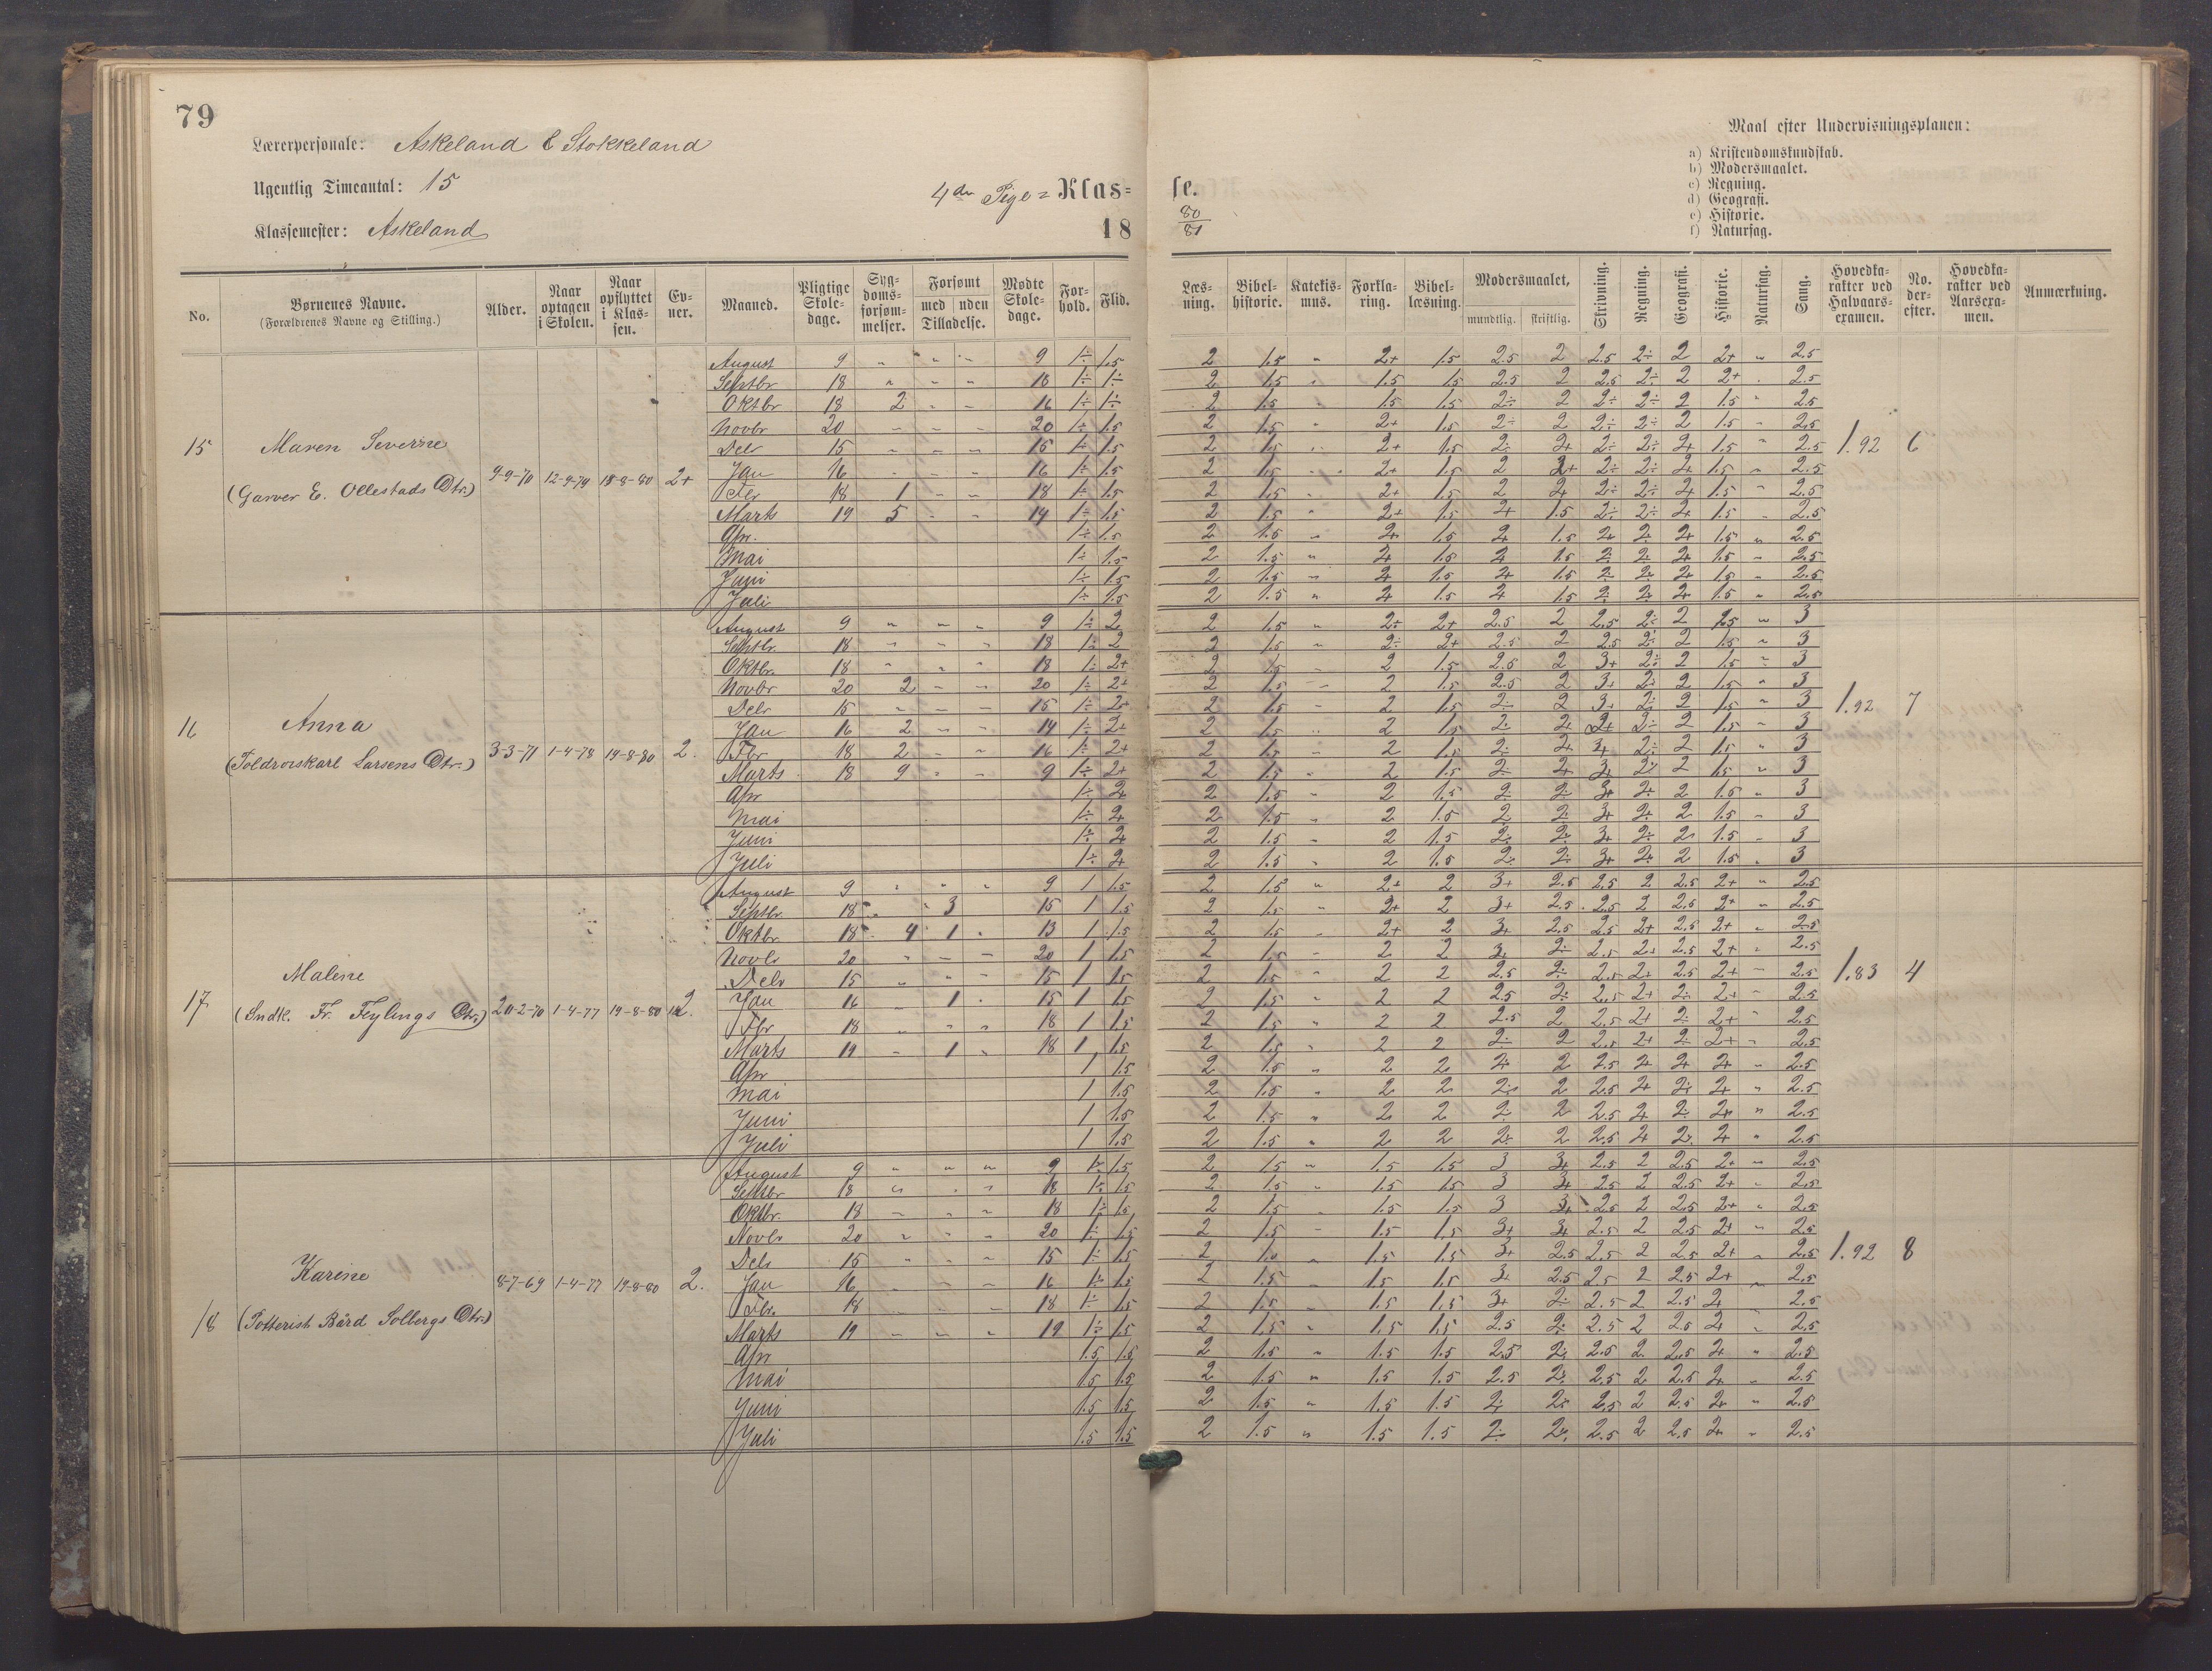 79
Lærerpersonale: Askeland & Stokkeland
Ugentlig Timeantal: 15
Klassemester: Askeland
4de Pige= Klas=se.
18 80/81
Maal efter Undervisningsplanen:
a) Kristendomskundskab.
b) Modersmaalet.
c) Regning.
d) Geografi.
e) Historie.
f) Naturfag.
No. | Børnenes Navne. (Forældrenes Navne og Stilling.) | Alder. | Naar optagen i Skolen. | Naar opflyttet i Klassen. | Evner. | Maaned. | Pligtige Skoledage. | Sygdomsforsømmelser. | Forsømt med uden Tilladelse. | Mødte Skoledage. | Forhold. | Flid. | Læsning. | Bibelhistorie. | Katekismus. | Forklaring. | Bibellæsning. | Modersmaalet, mundtlig. skriftlig. | Skrivning. | Regning. | Geografi. | Historie. | Naturfag. | Sang. | Hovedkarakter ved Halvaarsexamen. | No. derefter. | Hovedkarakter ved Aarsexamen. | Anmærkning.
15 Maren Severine
(Garver E. Ollestads Dtr.) 9-9-70 12-9-79 18-8-80 2+
August 9 " " " 9 1÷ 1.5 2 1.5 " 2+ 1.5 2.5 2 2.5 2÷ 2 2+ " 2.5
Septbr 18 " " " 18 1÷ 1÷ 2 1.5 " 1.5 1.5 2.5 2 2.5 2÷ 2 2+ " 2.5
Oktbr 18 2 " " 16 1÷ 1÷ 2 1.5 " 1.5 1.5 2÷ 2 2÷ 2÷ 2 1.5 " 2.5
Novbr 20 " " " 20 1÷ 1.5 2 1.5 " 2+ 1.5 2÷ 2 2÷ 2÷ 2 1.5 " 2.5
Debr 15 " " " 15 1÷ 1.5 2 1.5 " 2+ 1.5 2÷ 2+ 2÷ 2÷ 2+ 1.5 " 2.5 1.92 6
Jan 16 " " " 16 1÷ 1.5 2 1.5 " 2+ 1.5 2 2+ 2÷ 2÷ 2+ 1.5 " 2.5
Fbr 18 1 " " 18 1÷ 1.5 2 1.5 " 2+ 1.5 2 2+ 2÷ 2÷ 2+ 1.5 " 2.5
Marts 19 5 " " 14 1÷ 1.5 2 1.5 " 2+ 1.5 2+ 1.5 2÷ 2÷ 2+ 1.5 " 2.5
Apr. 1÷ 1.5 2 1.5 " 2+ 1.5 2+ 1.5 2÷ 2÷ 2+ 1.5 " 2.5
Mai 1÷ 1.5 2 1.5 " 2+ 1.5 2+ 1.5 2÷ 2÷ 2+ 1.5 " 2.5
Juni 1÷ 1.5 2 1.5 " 2+ 1.5 2+ 1.5 2÷ 2÷ 2+ 1.5 " 2.5
Juli 1÷ 1.5 2 1.5 " 2+ 1.5 2+ 1.5 2÷ 2÷ 2+ 1.5 " 2.5
16 Anna
Larsens Dtr.) 3-3-71 1-4-78 19-8-80 2.
August 9 " " " 9 1÷ 2 2 1.5 " 2÷ 2+ 2.5 2 2.5 2÷ 2 1.5 " 3
Septbr. 18 " " " 18 1÷ 2 2 1.5 " 2÷ 2+ 2.5 2 2.5 2÷ 2 1.5 " 3
Oktbr. 18 " " " 18 1÷ 2+ 2 1.5 " 2 1.5 2.5 2 3+ 2÷ 2 1.5 " 3
Novbr 20 2 " " 20 1÷ 2+ 2 1.5 " 2 1.5 2.5 2 3+ 2÷ 2 1.5 " 3
Debr 15 " " " 15 1÷ 2+ 2 1.5 " 2 1.5 2÷ 2 3+ 2÷ 2 1.5 " 3 1.92 7
Jan 16 2 " " 14 1÷ 2+ 2 1.5 " 2 1.5 2÷ 2÷ 3+ 2÷ 2 1.5 " 3
Fbr 18 2 " " 16 1÷ 2+ 2 1.5 " 2 1.5 2÷ 2÷ 3+ 2÷ 2 1.5 " 3
Marts 18 9 " " 9 1÷ 2+ 2 1.5 " 2 1.5 2÷ 2÷ 3+ 2÷ 2 1.5 " 3
Apr 1÷ 2+ 2 1.5 " 2 1.5 2÷ 2÷ 3+ 2÷ 2 1.5 " 3
Mai 1÷ 2+ 2 1.5 " 2 1.5 2÷ 2÷ 3+ 2÷ 2 1.5 " 3
Juni 1÷ 2+ 2 1.5 " 2 1.5 2÷ 2÷ 3+ 2÷ 2 1.5 " 3
Juli 1÷ 2+ 2 1.5 " 2 1.5 2÷ 2÷ 3+ 2÷ 2 1.5 " 3
17 Malene
(Sndk. Fr. Feylings Dtr.) 20-2-70 1-4-77 19-8-80 2.
August 9 " " " 9 1 1.5 2 1.5 " 2+ 2 3+ 2.5 2.5 2 2.5 2+ " 2.5
Septbr. 18 " 3 15 1 1.5 2 1.5 " 2+ 2 3+ 2.5 2.5 2 2.5 2+ " 2.5
Oktbr 18 4 1 " 13 1 1.5 2 1.5 " 2+ 2 3+ 2.5 2.5 2+ 2.5 2+ " 2.5
Novbr 20 " " " 20 1 1.5 2 1.5 " 2 2 3+ 2÷ 2.5 2+ 2.5 2+ " 2.5
Debr 15 " " " 15 1 1.5 2 1.5 " 2 2 2.5 2÷ 2.5 2+ 2.5 2+ " 2.5 1.83 4
Jan 16 " 1 " 15 1 1.5 2 1.5 " 2 2 2.5 2÷ 2.5 2+ 2÷ 2+ " 2.5
Fbr 18 " " " 18 1 1.5 2 1.5 " 2 2 2.5 2 2.5 2+ 2÷ 2+ " 2.5
Marts 19 " 1 " 18 1 1.5 2 1.5 " 2 2 2÷ 2 2.5 2+ 2÷ 2+ " 2.5
Apr 1 1.5 2 1.5 " 2 2 2÷ 2 2.5 2+ 2÷ 2+ " 2.5
Mai 1 1.5 2 1.5 " 2 2 2÷ 2 2.5 2+ 2÷ 2+ " 2.5
Juni 1 1.5 2 1.5 " 2 2 2÷ 2 2.5 2+ 2÷ 2+ " 2.5
Juli 1 1.5 2 1.5 " 2 2 2÷ 2 2.5 2+ 2÷ 2+ " 2.5
18 Karine
(Potterist Bård Solbergs Dtr.) 8-7-69 1-4-77 19-8-80 2.
August 9 " " " 9 1÷ 1.5 2 1.5 " 1.5 1.5 3 3+ 2.5 2 2.5 2+ " 2.5
Septbr 18 " " " 18 1÷ 1.5 2 1.5 " 1.5 1.5 3 3+ 2.5 2 2.5 2+ " 2.5
Oktbr. 18 " " " 18 1÷ 1.5 2 1.5 " 1.5 1.5 3 3+ 2.5 2 2.5 2+ " 2.5
Novbr 20 " " " 20 1÷ 1.5 2 1.5 " 1.5 1.5 3+ 3+ 2.5 2 2.5 2+ " 2.5
Debr 15 " " " 15 1÷ 1.5 2 1.5 " 1.5 1.5 3+ 2.5 2.5 2 2.5 2+ " 2.5 1.92 8
Jan 16 " " " 16 1÷ 1.5 2 1.5 " 1.5 1.5 3+ 2.5 2.5 2 2.5 2+ " 2.5
Fbr. 18 " " " 18 1÷ 1.5 2 1.5 " 1.5 1.5 3+ 2÷ 2.5 2 2.5 2+ 2.5
Marts 19 " " " 19 1÷ 1.5 2 1.5 " 1.5 1.5 2.5 2÷ 2.5 2 2.5 2+ " 2.5
Apr 1.5 1.5 2 1.5 " 1.5 1.5 2.5 2÷ 2.5 2 2.5 2+ " 2.5
Mai 1.5 1.5 2 1.5 " 1.5 1.5 2.5 2÷ 2.5 2 2.5 2+ " 2.5
Juni 1.5 1.5 2 1.5 " 1.5 1.5 2÷ 2÷ 2.5 2 2.5 2+ " 2.5
Juli 1.5 1.5 2 1.5 " 1.5 1.5 2÷ 2÷ 2.5 2 2.5 2+ " 2.5